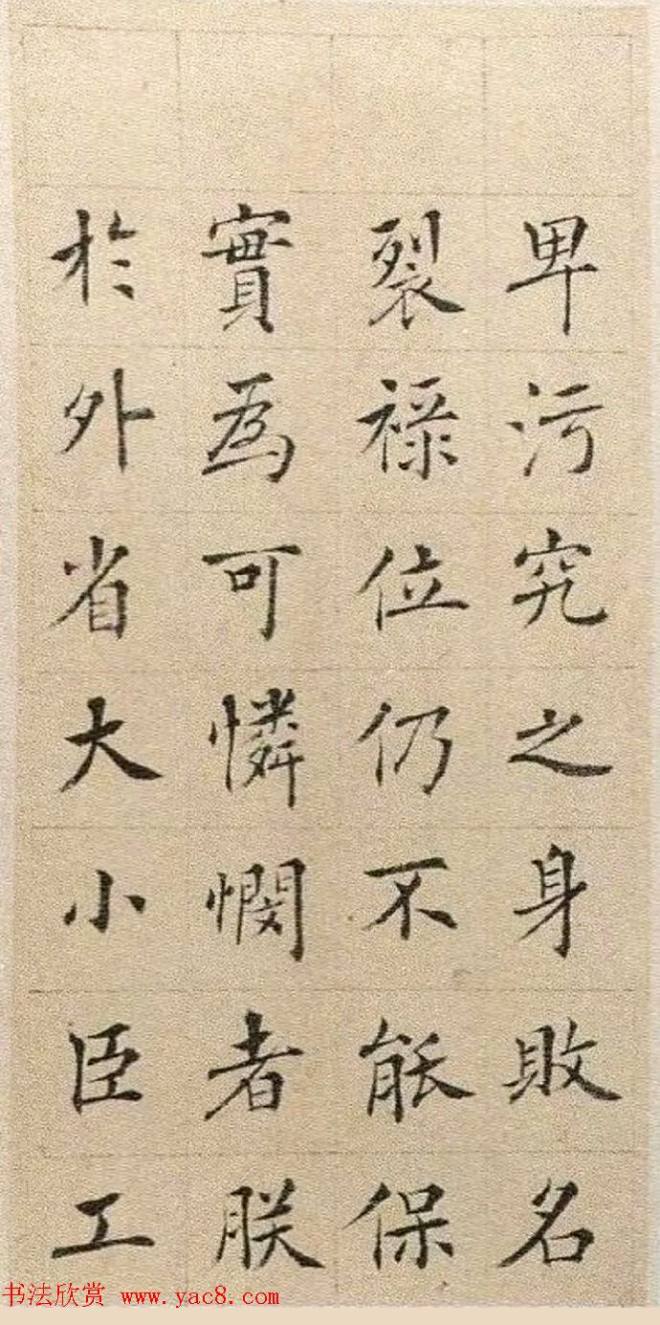 卑污究之身敗名
裂祿位仍不能保
實為可憐憫者朕
於外省大小臣工
书法欣赏 www.yac8.com